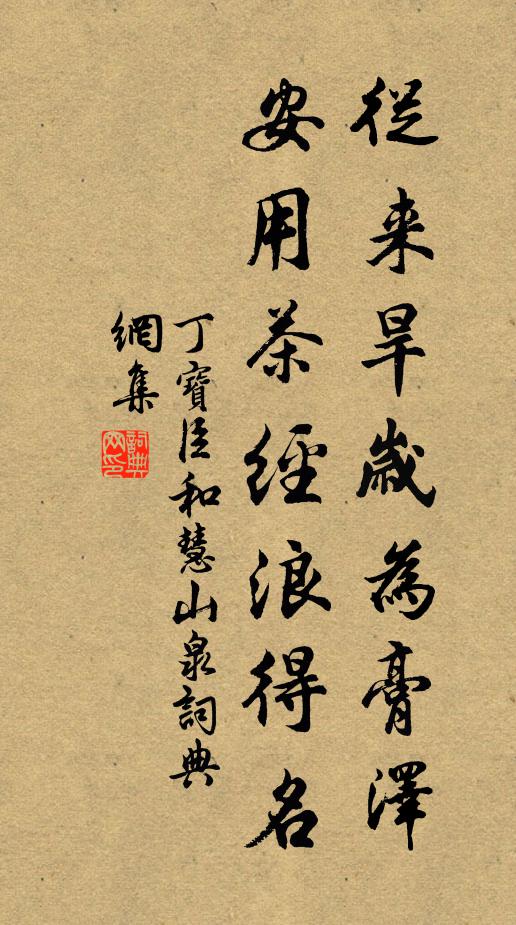 從来旱歲為膏澤
安用茶經浪得名
丁寶臣和慧山泉詞典
網集
詞典
网印